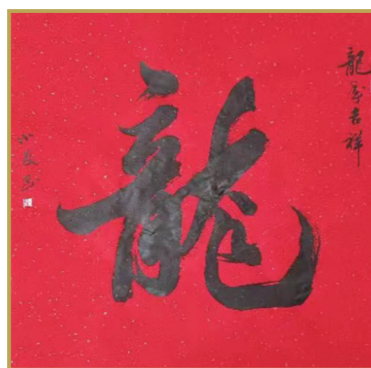 龍年吉祥
龍